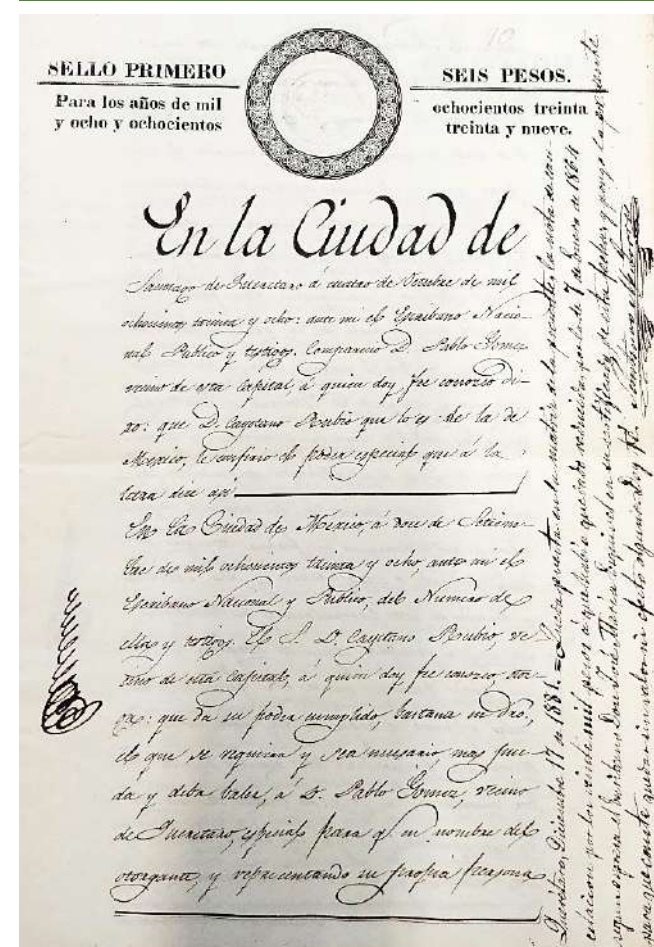 SELLO PRIMERO
SEIS PESOS.
Para los años de mil
ochocientos treinta
y ocho y ochocientos
treinta y nueve.
En la Ciudad de
Santiago de Queretaro á cuatro de Octubre de mil
ochocientos treinta y ocho: ante mi el Escribano Nacio-
nal Publico y testigos. Comparecio D. Pablo Gomez
vecino de esta Capital, á quien doy fee conozco di-
xo: que D. Cayetano Rubio que lo es de la de
Mexico, le confirio el poder especial que á la
letra dice asi
En la Ciudad de México, á doce de Setiem-
bre de mil ochocientos treinta y ocho, ante mi el
Escribano Nacional y Publico, del Numero de
ella y testigos. El S. D. Cayetano Rubio, ve-
cino de esta Capital, á quien doy fee conozco, otor-
ga: que da su poder cumplido, bastante en dro,
el que se requiera y sea necesario, mas pue-
da y deba valer, á D. Pablo Gomez, vecino
de Queretaro, especial para q. en nombre del
otorgante, y representando su propia persona
Querétaro, Diciembre 17 de 1881. = Queda puesta en la matriz de la presente, la nota de can-
celacion por los veinte mil pesos á que habia quedado reducida por la de 7 de Enero de 1864
segun expresa el Escribano Don José María Esquivel en su certificado de esta fecha y pongo la presente
para que conste quedar sin valor ni efecto alguno. Doy fé.